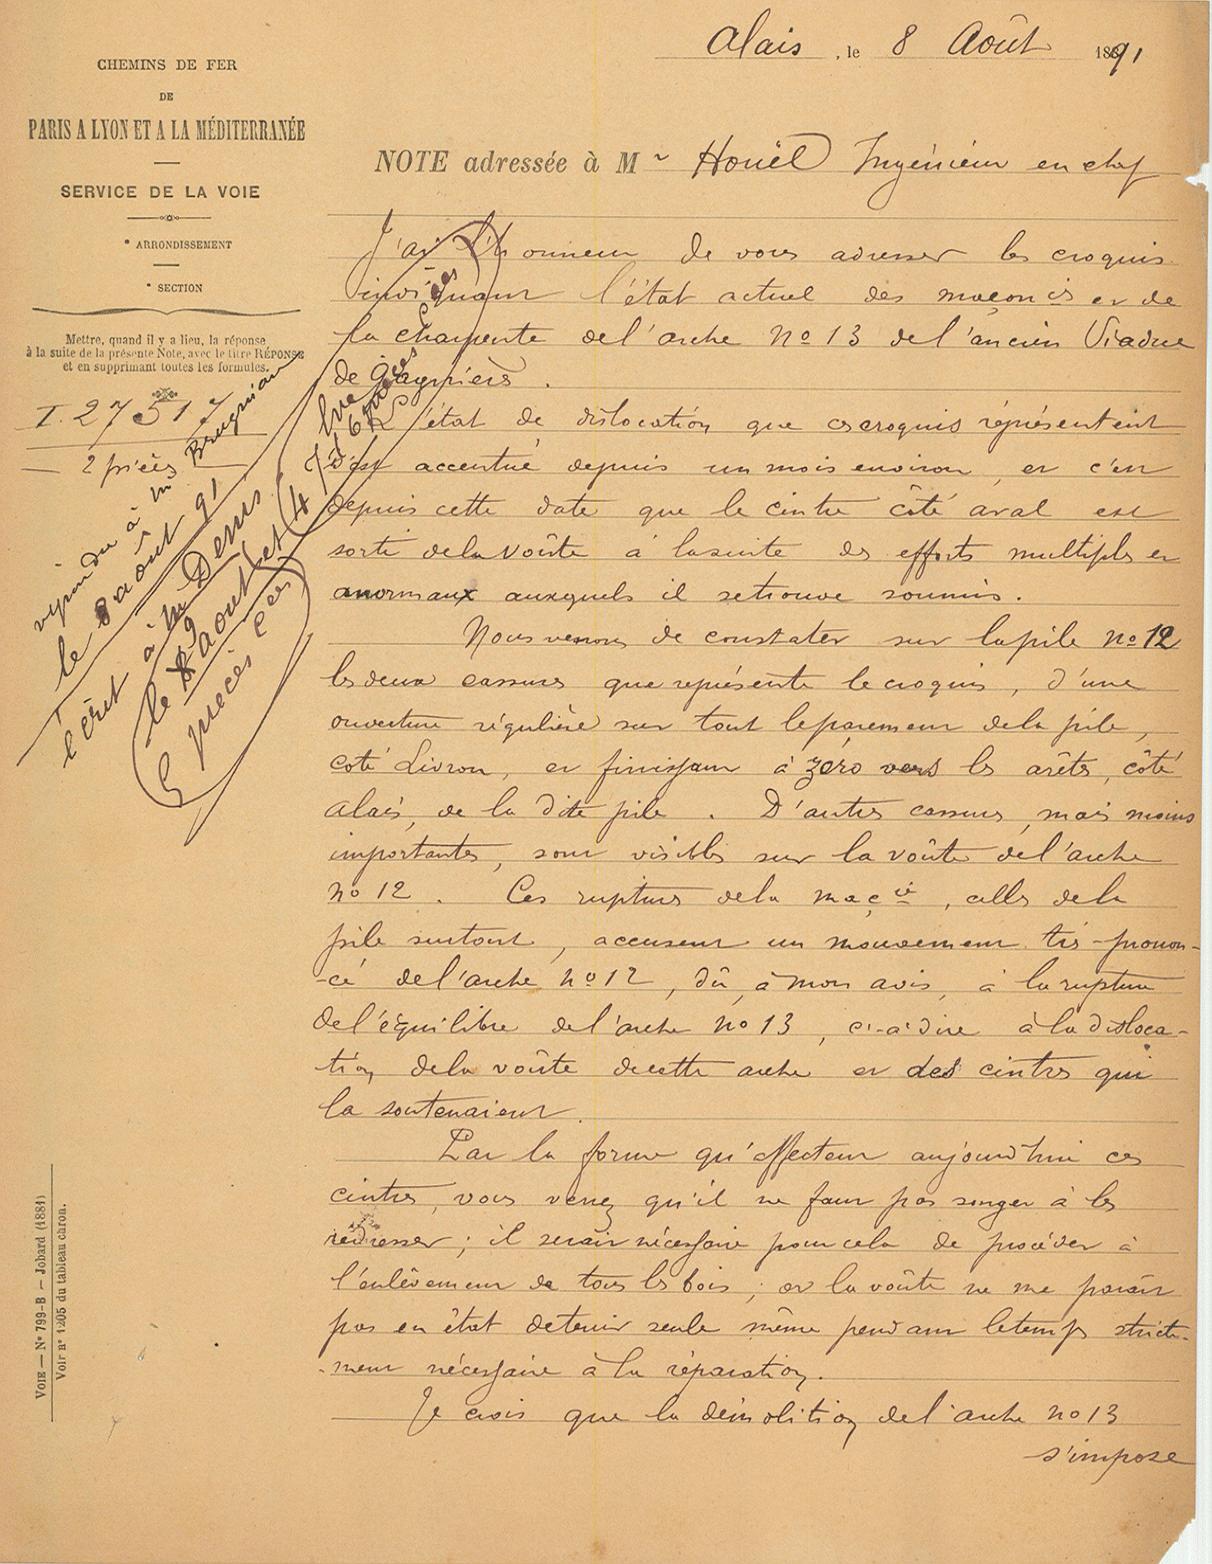 Alais, le 8 Août 1891
CHEMINS DE FER
DE
PARIS A LYON ET A LA MÉDITERRANÉE
SERVICE DE LA VOIE
e ARRONDISSEMENT
e SECTION
Mettre, quand il y a lieu, la réponse
à la suite de la présente Note, avec le titre RÉPONSE
et en supprimant toutes les formules.
I. 27517
2 pièces
répondu à Mr Brugnian
le 8 août 91
écrit à Mr Denis
le 9 août
NOTE adressée à Mr Houël Ingénieur en chef
J'ai l'honneur de vous adresser les croquis
indiquant l'état actuel des maçonies et de
la charpente de l'arche No 13 de l'ancien Viaduc
de Gagnières.
L'état de dislocation que ces croquis représentent
s'est accentué depuis un mois environ, et c'est
depuis cette date que le cintre côté aval est
sorti de la voûte à la suite des efforts multiples et
anormaux auxquels il se trouve soumis.
Nous venons de constater sur la pile no 12
les deux cassures que représente le croquis, d'une
ouverture régulière sur tout le parement de la pile,
côté Livron, et finissant à zéro vers les arêtes, côté
Alais, de la dite pile. D'autres cassures, mais moins
importantes, sont visibles sur la voûte de l'arche
no 12. Ces ruptures de la maçie, celles de la
pile surtout, accusent un mouvement très-pronon-
-cé de l'arche no 12, dû, à mon avis, à la rupture
de l'équilibre de l'arche no 13, c.-à-dire à la disloca-
tion de la voûte de cette arche et des cintres qui
la soutenaient.
Par la forme qu'affectent aujourd'hui ces
cintres, vous verrez qu'il ne faut pas songer à les
redresser; il serait nécessaire pour cela de procéder à
l'enlèvement de tous les bois; or la voûte ne me paraît
pas en état de tenir seule même pendant le temps stricte-
-ment nécessaire à la réparation.
Je crois que la démolition de l'arche no 13
s'impose
VOIE — No 799-B — Jobard (1881)
Voir no 1205 du tableau chron.